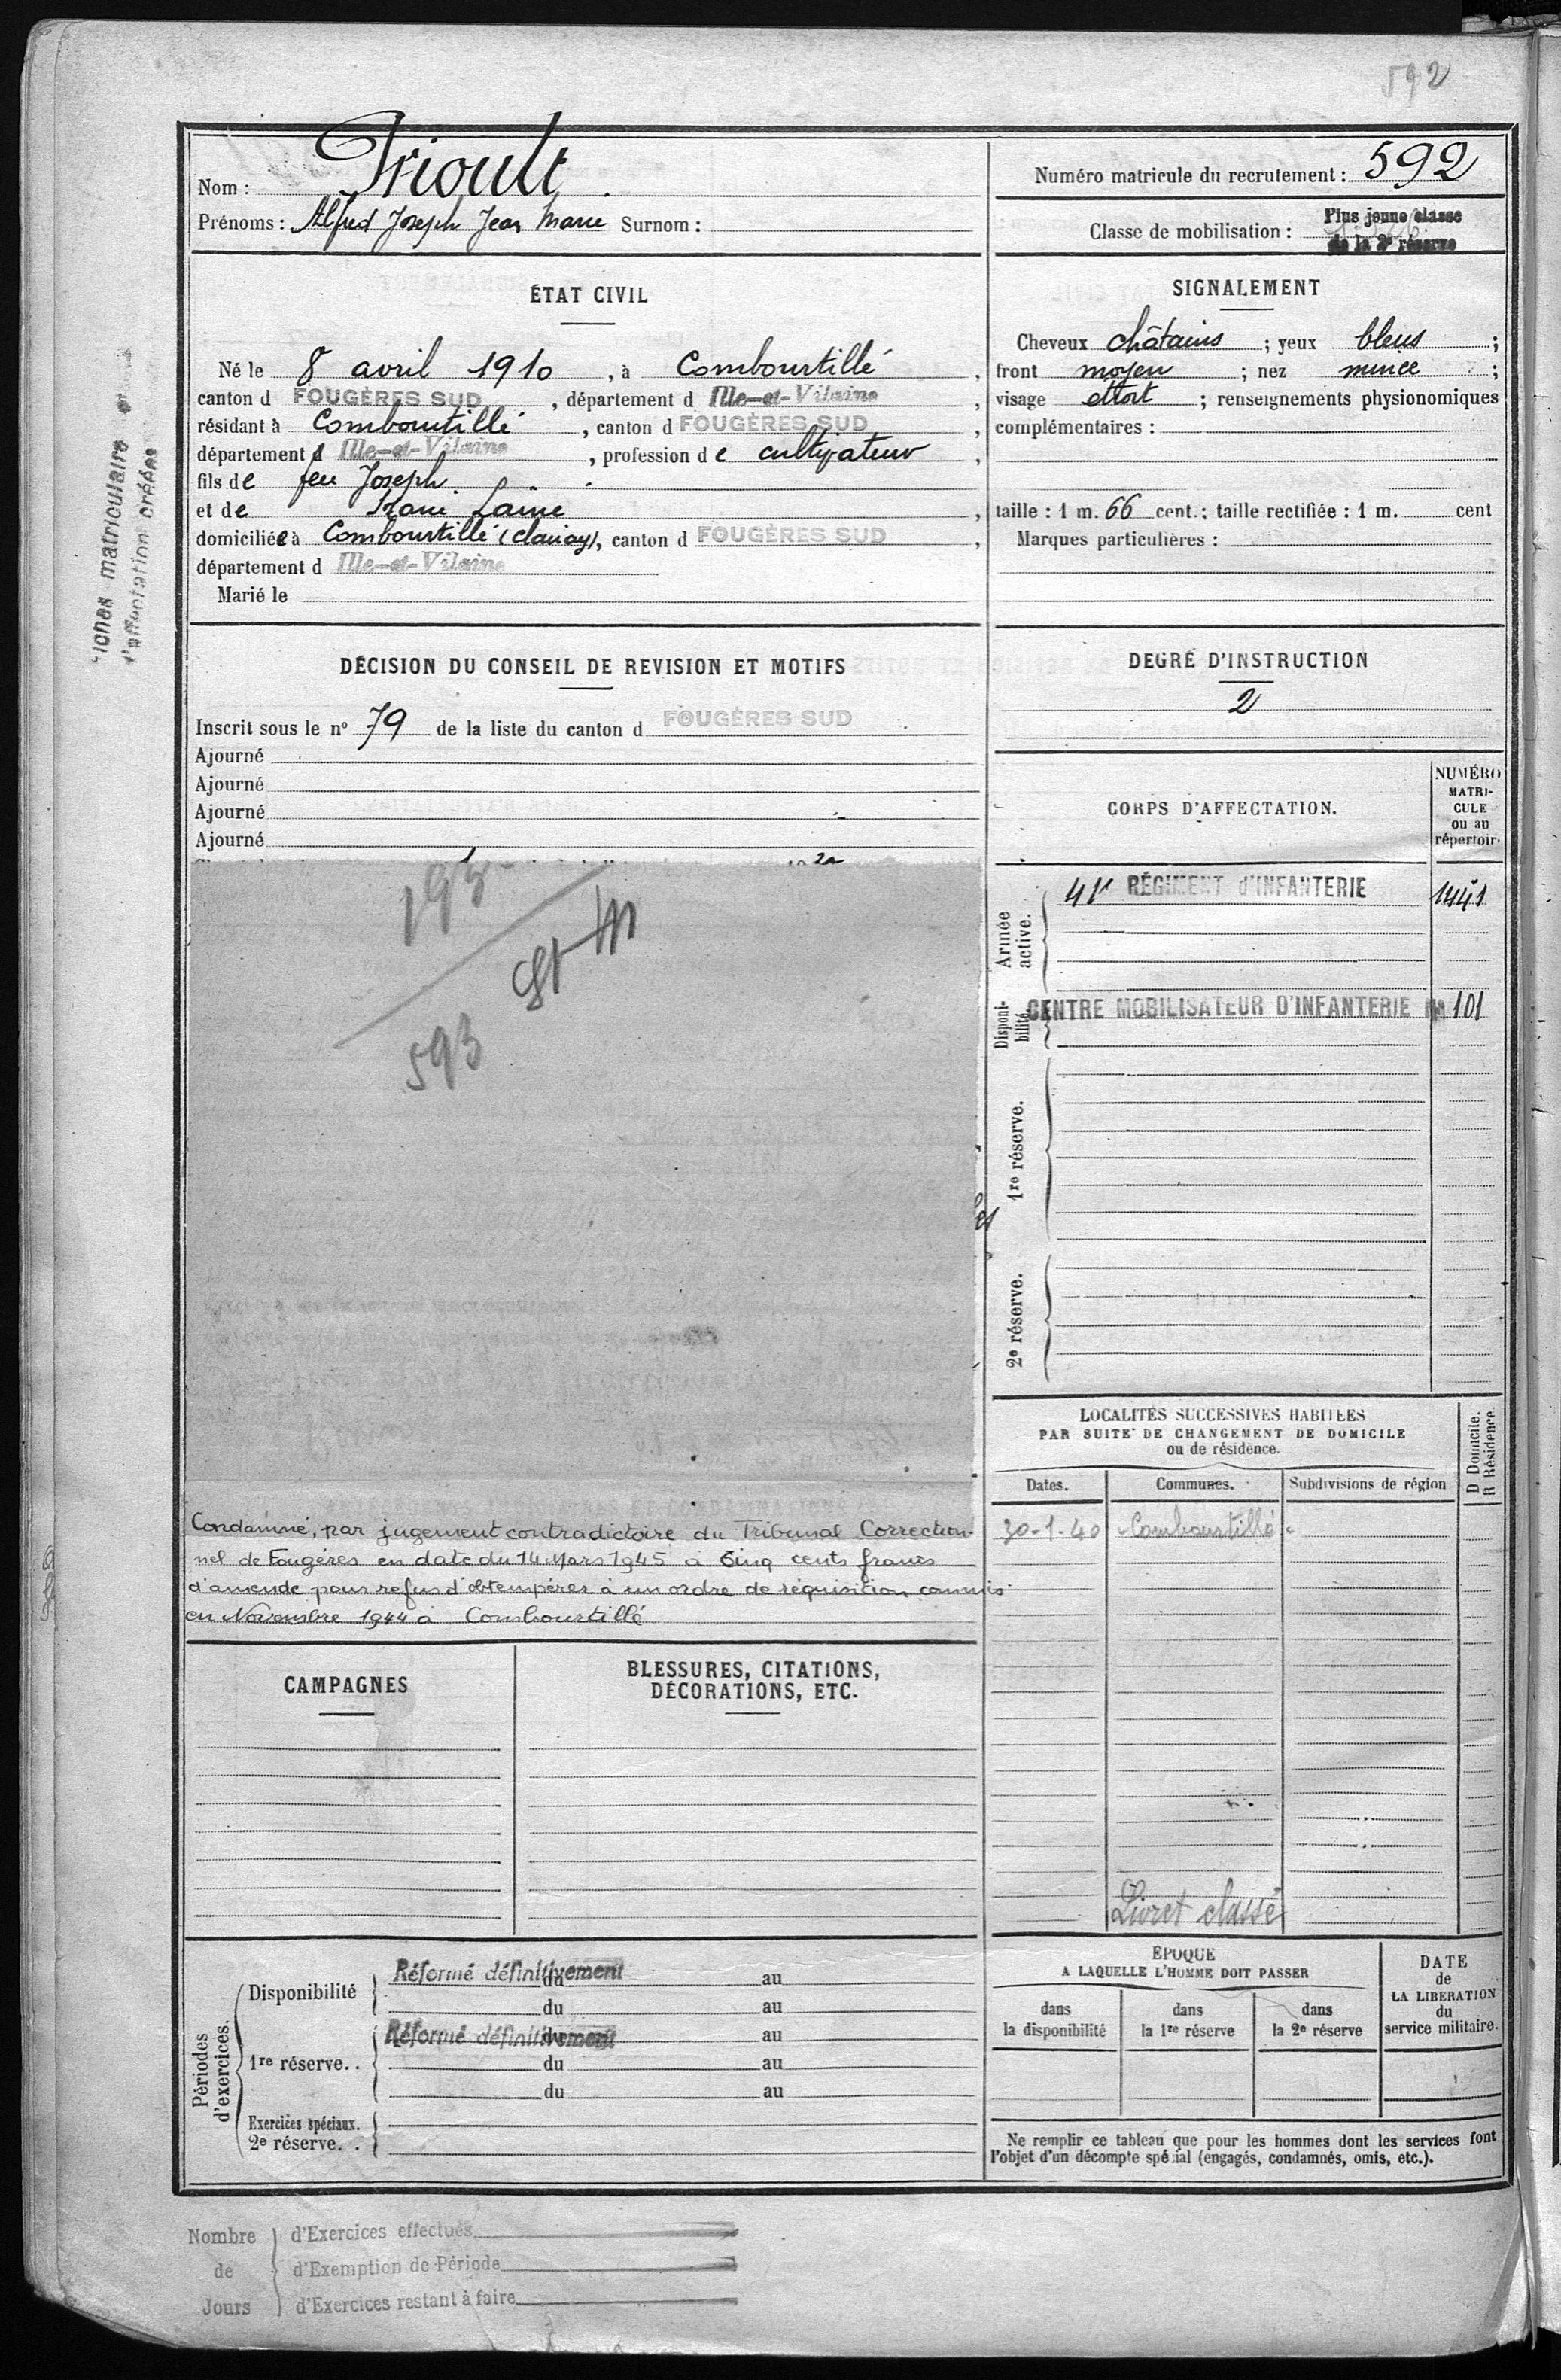 592
Nom : Prioult
Prénoms : Alfred Joseph Jean Marie Surnom :
Numéro matricule du recrutement : 592
Classe de mobilisation : Plus jeune classe
de la 2e réserve
ÉTAT CIVIL
Né le 8 avril 1910, à Combourtillé,
canton d FOUGÈRES SUD, département d Ille-et-Vilaine,
résidant à Combourtillé, canton d FOUGÈRES SUD,
département d Ille-et-Vilaine, profession de cultivateur,
fils de feu Joseph
et de Marie Laine,
domiciliée à Combourtillé, canton d FOUGÈRES SUD,
département d Ille-et-Vilaine
Marié le
SIGNALEMENT
Cheveux châtains ; yeux bleus ;
front moyen ; nez mince ;
visage ; renseignements physionomiques
complémentaires :
taille : 1 m. 66 cent. ; taille rectifiée : 1 m. cent
Marques particulières :
fiches matriculaire
d'affectation créées
DÉCISION DU CONSEIL DE REVISION ET MOTIFS
Inscrit sous le n° 79 de la liste du canton d FOUGÈRES SUD
Ajourné
Ajourné
Ajourné
Ajourné
593
DEGRÉ D'INSTRUCTION
2
CORPS D'AFFECTATION.
NUMÉRO
MATRI-
CULE
ou au
répertoir
Armée
active.
41e RÉGIMENT d'INFANTERIE 1441
Disponi-
bilité
CENTRE MOBILISATEUR D'INFANTERIE 101
1re réserve.
2e réserve.
Condamné, par jugement contradictoire du Tribunal Correction-
nel de Fougères en date du 14 Mars 1945 à Cinq cents francs
d'amende pour refus d'obtempérer à un ordre de réquisition commis
en Novembre 1944 à Combourtillé
LOCALITÉS SUCCESSIVES HABITÉES
PAR SUITE DE CHANGEMENT DE DOMICILE
ou de résidence.
D Domicile.
R Résidence.
Dates. Communes. Subdivisions de région
30-1-40 Combourtillé
Livret classé
CAMPAGNES
BLESSURES, CITATIONS,
DÉCORATIONS, ETC.
Périodes
d'exercices.
Disponibilité
Réformé définitivement du au
du au
1re réserve. .
Réformé définitivement du au
du au
du au
Exercices spéciaux.
2e réserve. .
ÉPOQUE
A LAQUELLE L'HOMME DOIT PASSER
dans
la disponibilité
dans
la 1re réserve
dans
la 2e réserve
DATE
de
LA LIBÉRATION
du
service militaire.
Ne remplir ce tableau que pour les hommes dont les services font
l'objet d'un décompte spécial (engagés, condamnés, omis, etc.).
Nombre
de
Jours
d'Exercices effectués
d'Exemption de Période
d'Exercices restant à faire